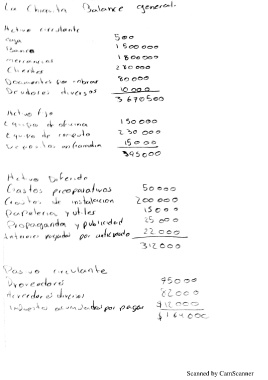 La Charrita Balance general.
Activo circulante
Caja 500
Banco 1500000
mercancias 1800000
Clientes 280000
Documentos por cobrar 80000
Deudores diversos 10000
3 670500
Activo fijo
Equipo de oficina 150000
Equipo de computo 230000
15000
395000
Activo Deferido
Gastos preoperativos 50000
Gastos de instalacion 200000
Papeleria y utiles 15000
Propaganda y publicidad 25000
Intereses pagados por anticipado 22000
312000
Pasivo circulante
Proveedores 75000
Acreedores diversos
Impuestos acumulados por pagar $12000
$164000
Scanned by CamScanner